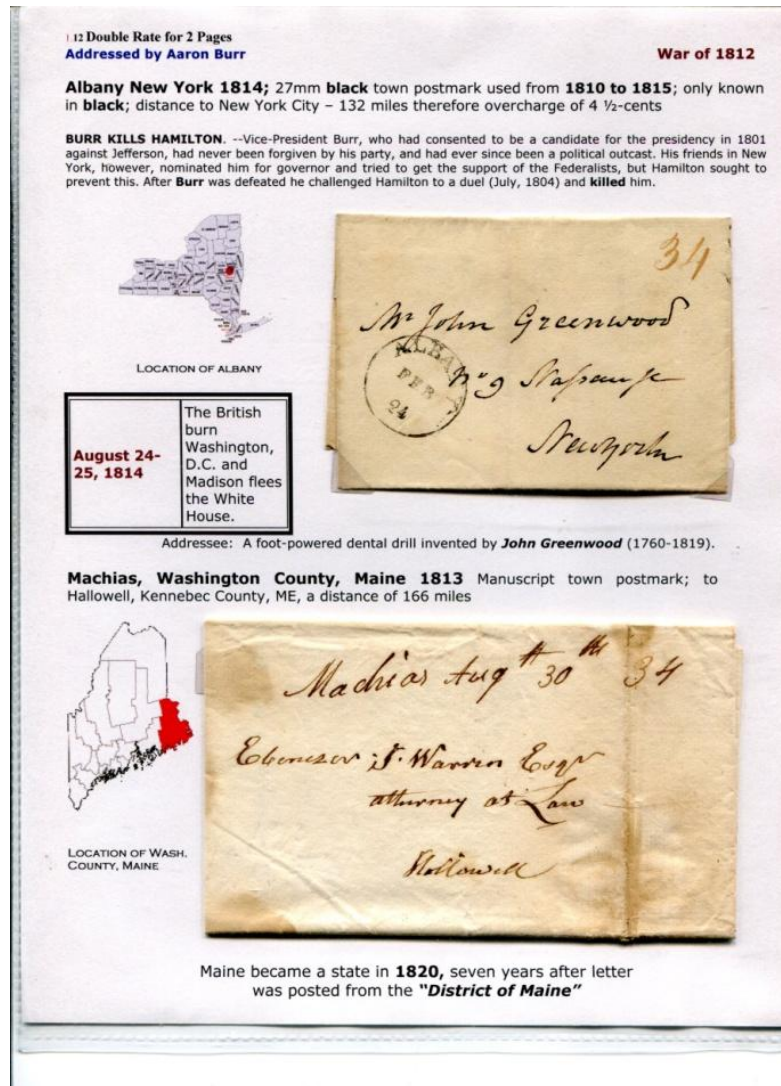 1 12 Double Rate for 2 Pages
Addressed by Aaron Burr
War of 1812
Albany New York 1814; 27mm black town postmark used from 1810 to 1815; only known
in black; distance to New York City – 132 miles therefore overcharge of 4 ½-cents
BURR KILLS HAMILTON. --Vice-President Burr, who had consented to be a candidate for the presidency in 1801
against Jefferson, had never been forgiven by his party, and had ever since been a political outcast. His friends in New
York, however, nominated him for governor and tried to get the support of the Federalists, but Hamilton sought to
prevent this. After Burr was defeated he challenged Hamilton to a duel (July, 1804) and killed him.
LOCATION OF ALBANY
34
Mr John Greenwood
ALBANY
FEB
24
No 9
Newyork
August 24-
25, 1814
The British
burn
Washington,
D.C. and
Madison flees
the White
House.
Addressee: A foot-powered dental drill invented by John Greenwood (1760-1819).
Machias, Washington County, Maine 1813 Manuscript town postmark; to
Hallowell, Kennebec County, ME, a distance of 166 miles
LOCATION OF WASH.
COUNTY, MAINE
Machias Augt 30th 34
Ebenezer T. Warren Esqr
atturney at Law
Hollowell
Maine became a state in 1820, seven years after letter
was posted from the "District of Maine"